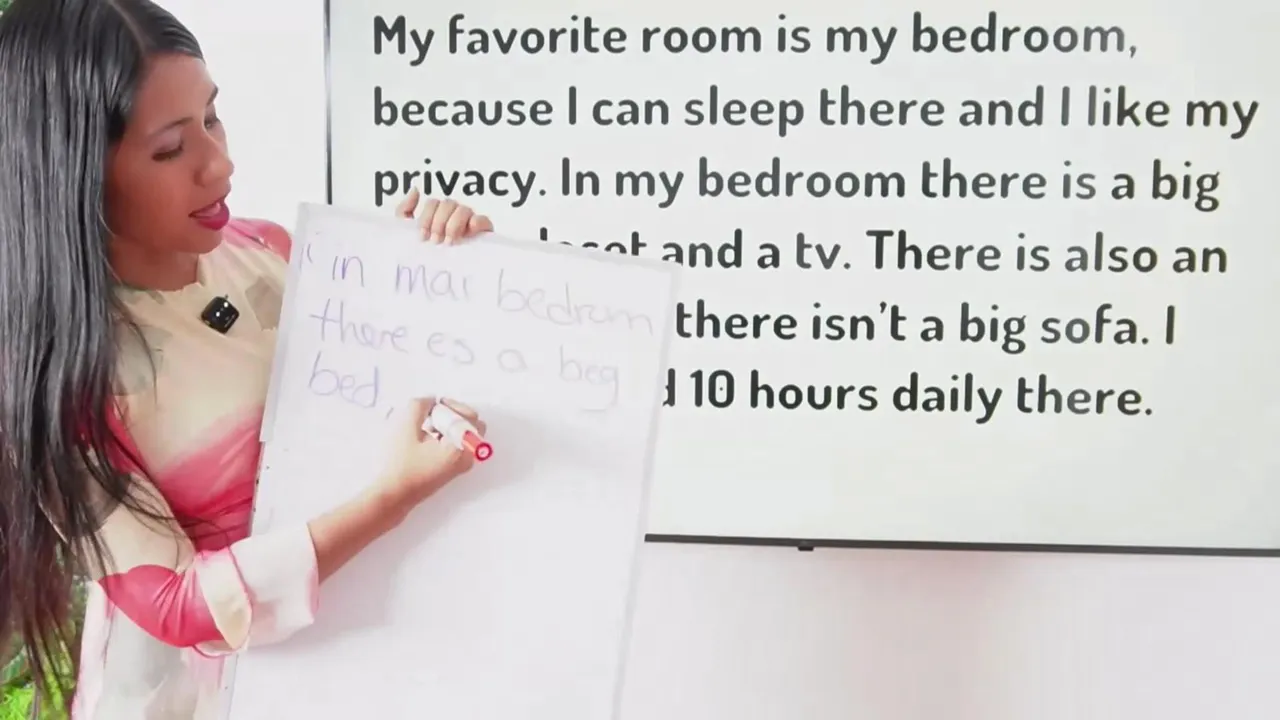 My favorite room is my bedroom,
because I can sleep there and I like my
privacy. In my bedroom there is a big
and a tv. There is also an
there isn't a big sofa. I
10 hours daily there.
"in mai bedrum
there es a beg
bed,